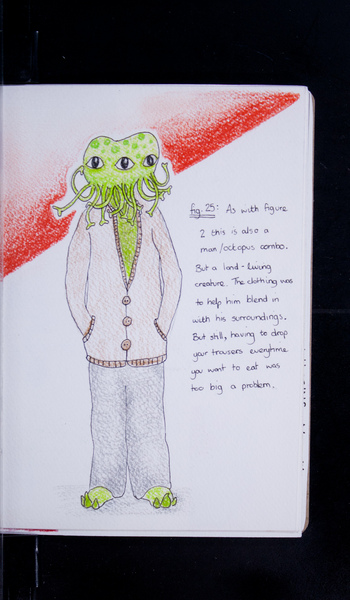 fig. 25: As with figure
2 this is also a
man/octopus combo.
But a land-living
creature. The clothing was
to help him blend in
with his surroundings.
But still, having to drop
your trousers everytime
you want to eat was
too big a problem.